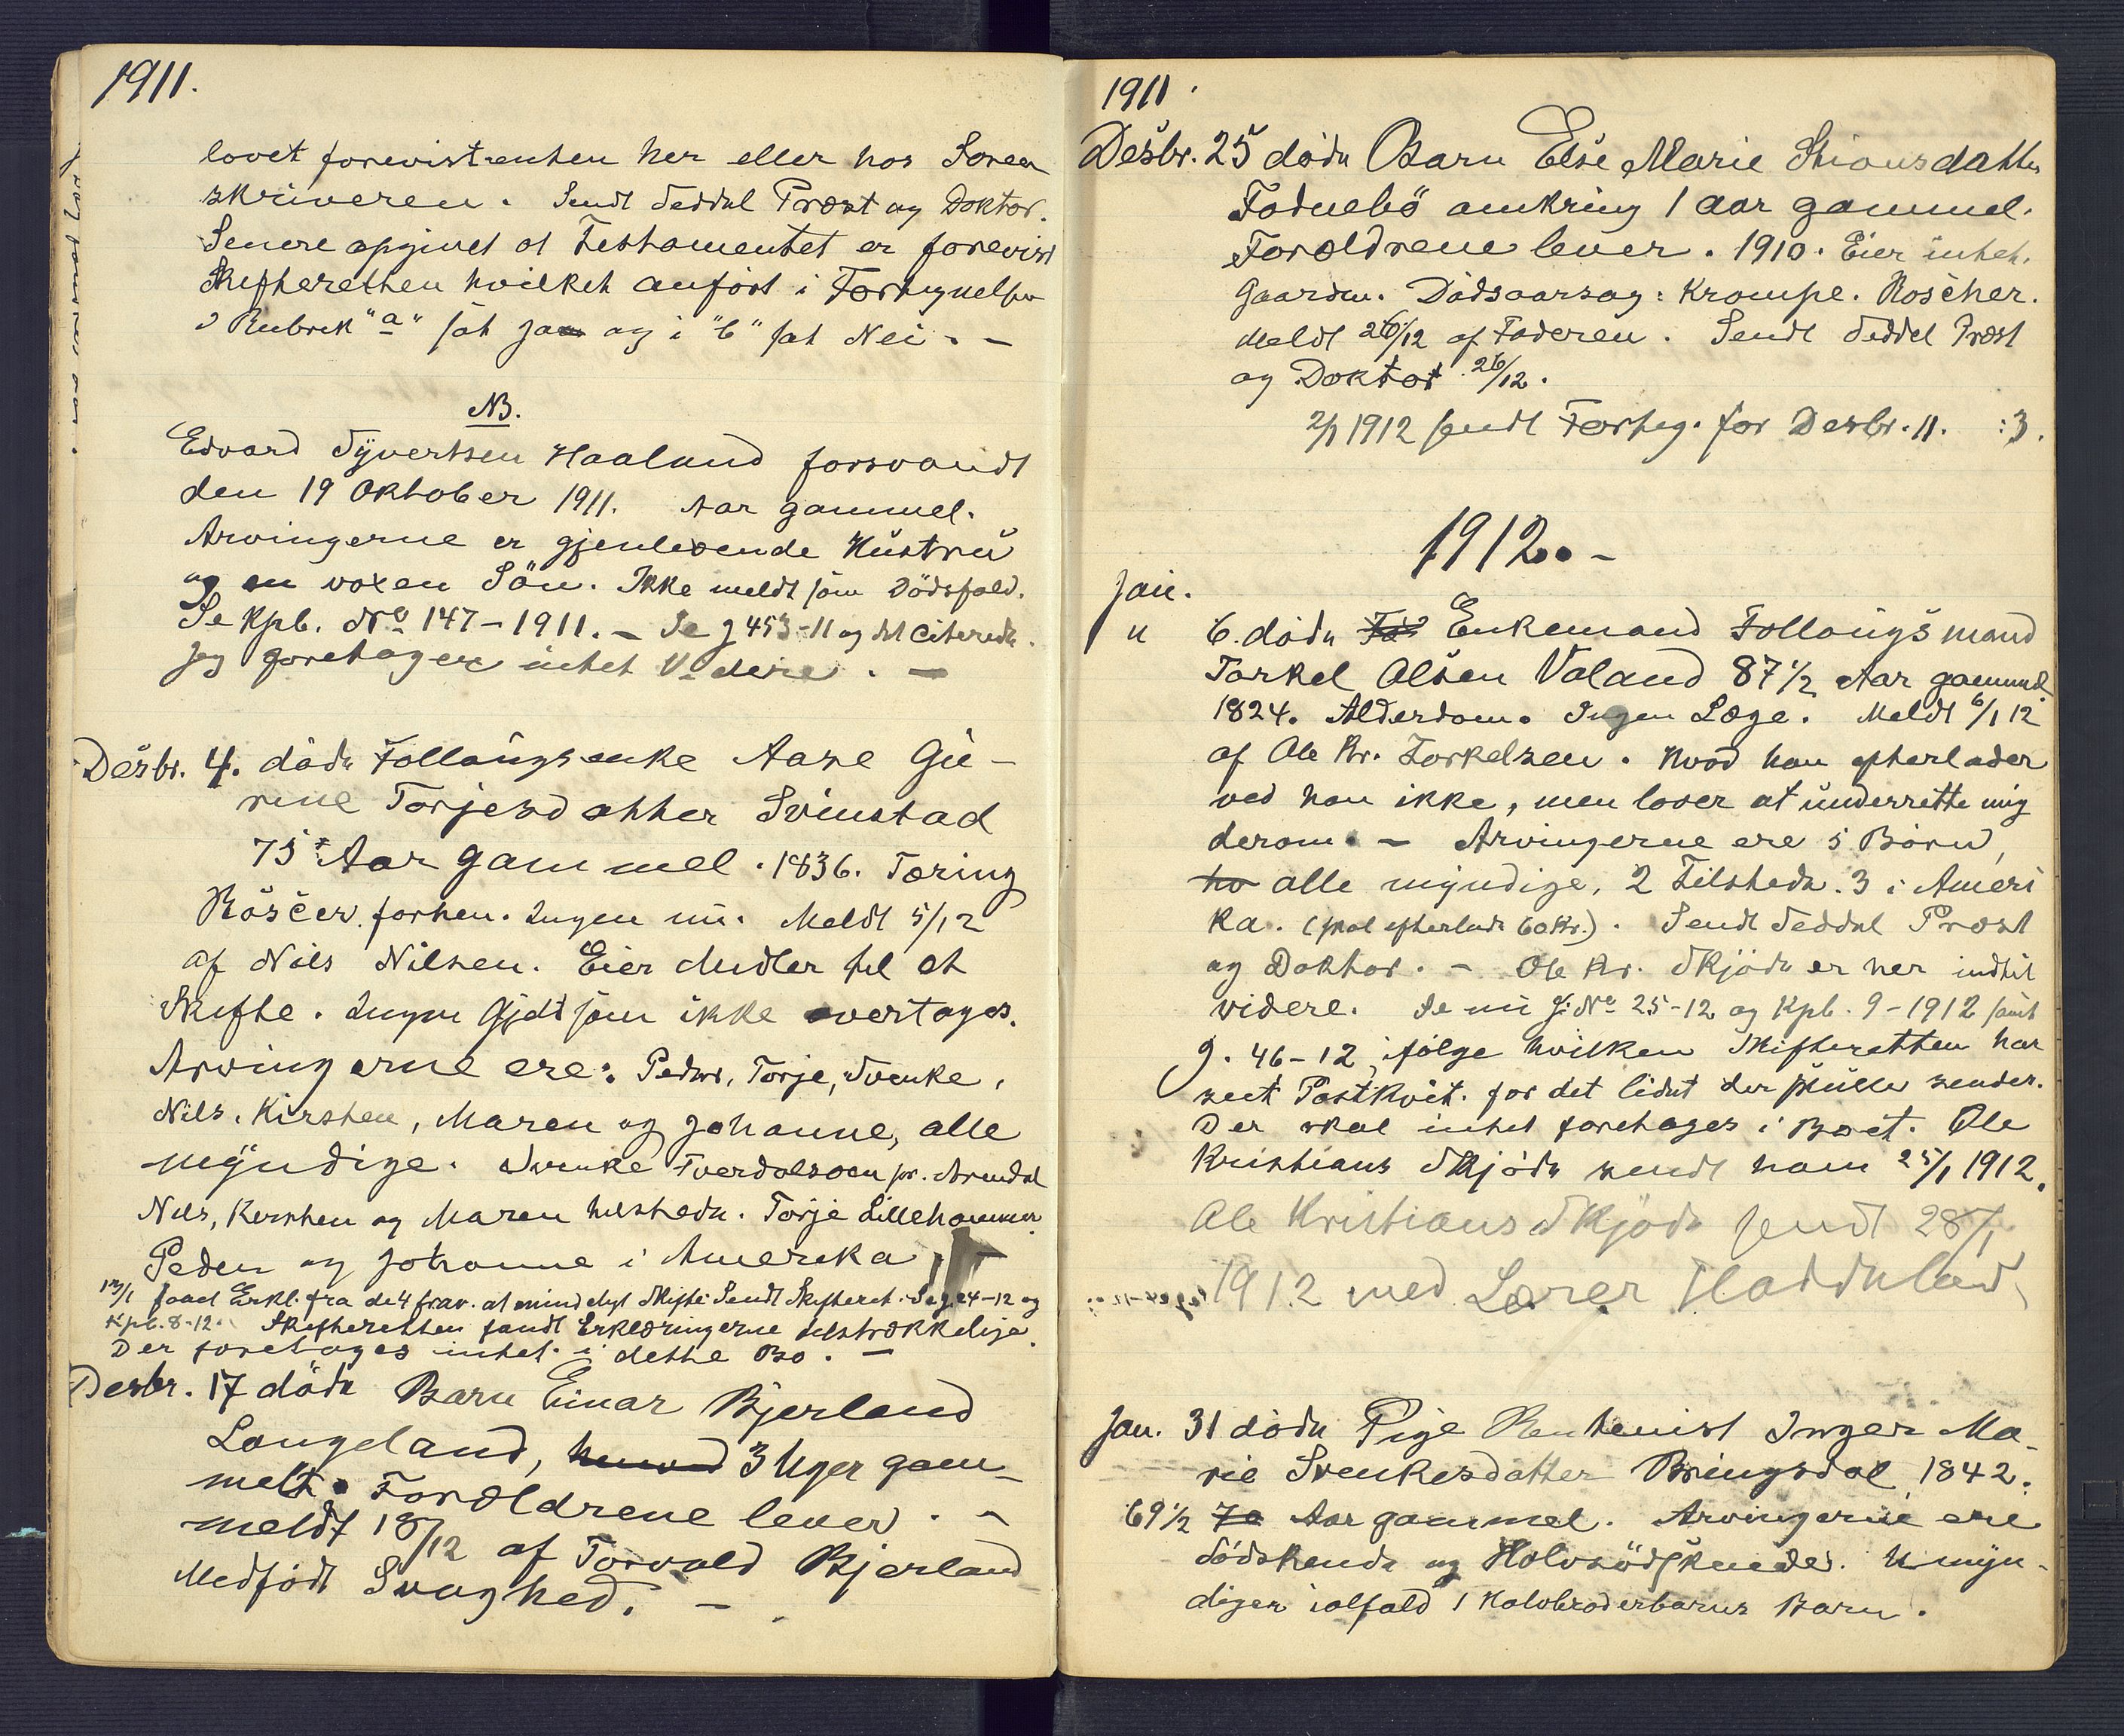 1911.
lovet forevist enten her eller hos Soren
skriveren. Sendt Seddel Præst og Doktor.
Senere opgivet at Testamentet er forevist
Skifteretten hvilket anført i Fortegnelsen
i Rubrik "a" sat ja og i "b" sat Nei. -
NB.
Edvard Syvertsen Haaland forsvandt
den 19 Oktober 1911. Aar gammel.
Arvingerne er gjenlevende Hustru
og en voxen Søn. Ikke meldt som Dødsfald.
Se Kpb. No 147-1911. - Se J 453-11 og det citerede.
Jeg foretager intet Videre. -
Desbr. 4. døde Føllaugsenke Aase Gu-
rine Torjesdatter Svinstad
75 Aar gammel. 1836. Tæring
Röscer forhen. Ingen nu. Meldt 5/12
af Nils Nilsen. Eier Midler til et
Skifte. Ingen Gjeld som ikke overtages.
Arvingerne ere: Peder, Torje, Svenke,
Nils, Kirsten, Maren og Johanne, alle
myndige. Svenke Tverdalsøen pr. Arendal
Nils, Kirsten og Maren tilstede. Torje Lillehammer
Peder og Johanne i Amerika
13/1 faaet Erkl. fra de 4 frav. at mindeligt Skifte. Sendt Skifteret. Se J. 24-12 og
Kpb. 8-12. Skifteretten fandt Erklæringerne tilstrækkelige.
Der foretages intet i dette Bo. -
Desbr. 17 døde Barn Einar Bjerland
Langeland, 3 Uger gam-
melt. Forældrene lever. -
meldt 18/12 af Torvald Bjerland
Medfødt Svaghed. -
1911.
Desbr. 25 døde Barn Else Marie Stiansdatter
Fodnebö omkring 1 aar gammel.
Forældrene lever. 1910. Eier intet.
Gaarden. Dødsaarsag: Krampe. Roscher.
Meldt 26/12 af Faderen. Sendt Seddel Præst
og Doktor 26/12.
2/1 1912 sendt Forteg. for Desbr. 11. :3.
1912. -
Jan.
" 6. døde Enkemand Føllaugsmand
Torkel Olsen Valand 87 1/2 Aar gammel
1824. Alderdom. Ingen Læge. Meldt 6/1 12
af Ole Kr. Torkelsen. Hvad han efterlader
ved han ikke, men lover at underrette mig
derom. - Arvingerne ere 5 Børn,
alle myndige, 2 Tilstede. 3 i Ameri
ka. (skal efterlade 60 Kr.). Sendt Seddel Præst
og Doktor. - Ole Kr. Skjøde er her indtil
videre. Se nu J. No 25-12 og Kpb. 9-1912 samt
J. 46-12, ifølge hvilken Skifteretten har
sent Postkvit. for det lidet der skulle sendes.
Der skal intet foretages i Boet. Ole
Kristians Skjøde sendt ham 25/1 1912.
Ole Kristians Skjøde sendt 28/1
1912 med Lærer Haddeland
Jan. 31 døde Pige Rentenist Inger Ma-
rie Svenkesdatter Bringsdal 1842.
69 1/2 70 Aar gammel. Arvingerne ere
Sødskende og Halvsødskendes. Umyn-
digen ialfald 1 Halvbroderbarns Barn.